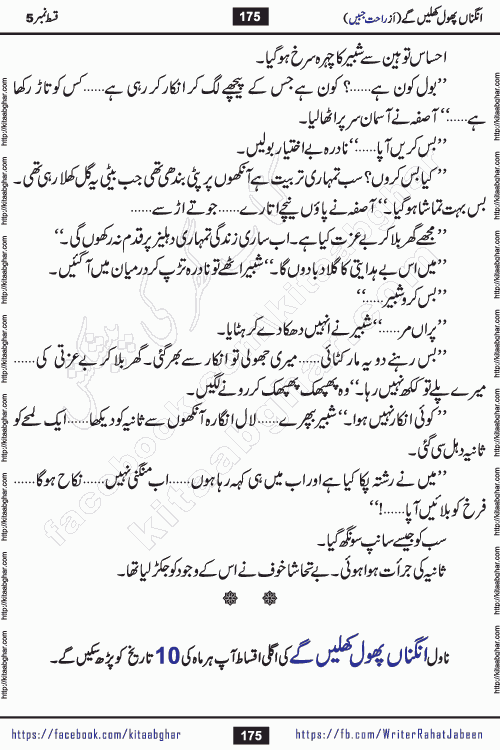 قسط نمبر 5
175
انگناں پھول کھلیں گے (از راحت جبیں)
احساس توہین سے شبیر کا چہرہ سرخ ہو گیا۔
’’بول کون ہے......؟ کون ہے جس کے پیچھے لگ کر انکار کر رہی ہے......کس کو تاڑ رکھا
ہے......‘‘ آصفہ نے آسمان سر پر اٹھا لیا۔
’’بس کریں آپا......‘‘ نادرہ بے اختیار بولیں۔
’’کیا بس کروں؟ سب تمہاری تربیت ہے آنکھوں پر پٹی بندھی تھی جب بیٹی یہ گل کھلا رہی تھی۔
بس بہت تماشا ہو گیا۔‘‘ آصفہ نے پاؤں نیچے اتارے......جوتے اڑسے......
’’مجھے گھر بلا کر بے عزت کیا ہے۔ اب ساری زندگی تمہاری دہلیز پر قدم نہ رکھوں گی۔‘‘
’’میں اس بے ہدایتی کا گلا دبا دوں گا۔‘‘ شبیر اٹھے تو نادرہ تڑپ کر درمیان میں آ گئیں۔
’’بس کرو شبیر......‘‘
’’پراں مر......‘‘ شبیر نے انہیں دھکا دے کر ہٹایا۔
’’بس رہنے دو یہ مار کٹائی......میری جھولی تو انکار سے بھر گئی۔ گھر بلا کر بے عزتی کی......
میرے پلے تو ککھ نہیں رہا۔‘‘ وہ پھپھک پھپھک کر رونے لگیں۔
’’کوئی انکار نہیں ہوا۔‘‘ شبیر بپھرے......لال انگارہ آنکھوں سے ثانیہ کو دیکھا......ایک لمحے کو
ثانیہ دہل سی گئی۔
’’میں نے رشتہ پکا کیا ہے اور اب میں ہی کہہ رہا ہوں......اب منگنی نہیں......نکاح ہو گا......
فرخ کو بلائیں آپا......!‘‘
سب کو جیسے سانپ سونگھ گیا۔
ثانیہ کی جرأت ہوا ہوئی۔ بے تحاشا خوف نے اس کے وجود کو جکڑ لیا تھا۔
ناول انگناں پھول کھلیں گے کی اگلی اقساط آپ ہر ماہ کی 10 تاریخ کو پڑھ سکیں گے۔
https://facebook.com/kitaabghar
175
https://fb.com/WriterRahatJabeen
http://kitaabghar.com